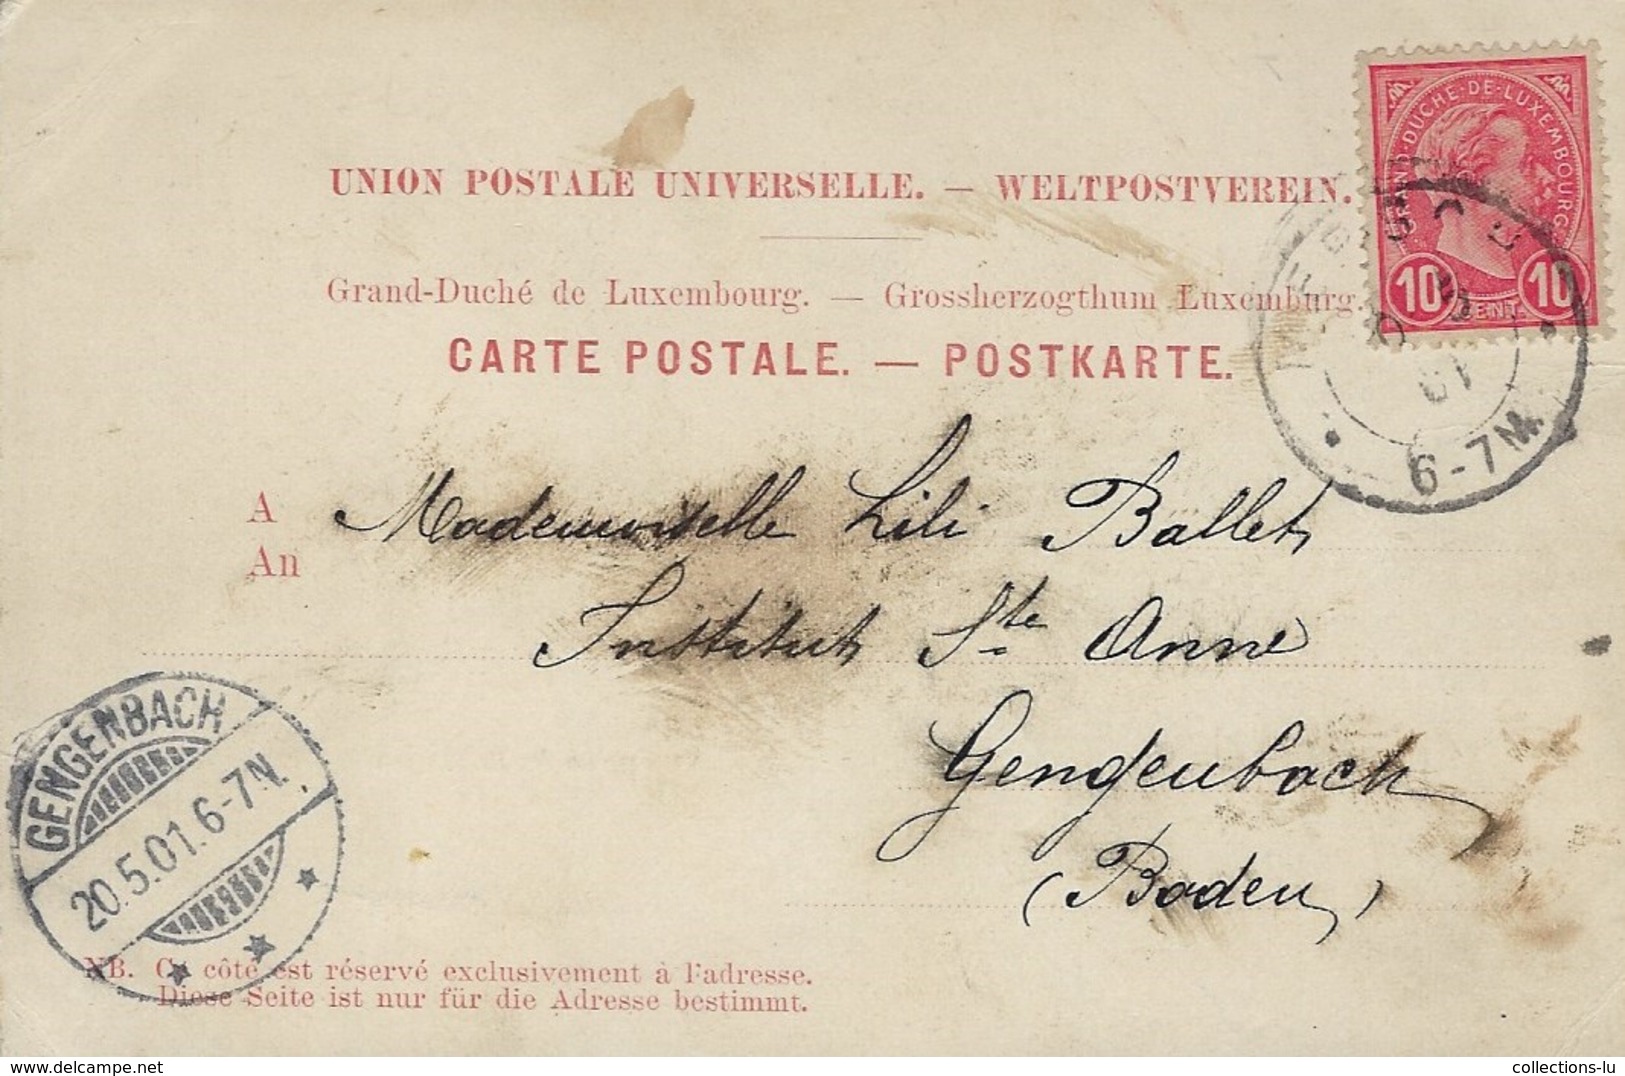 GRAND-DUCHÉ-DE-LUXEMBOURG
10 CENT. 10
UNION POSTALE UNIVERSELLE. — WELTPOSTVEREIN.
Grand-Duché de Luxembourg. — Grossherzogthum Luxemburg.
CARTE POSTALE. — POSTKARTE.
01
6-7N.
A Mademoiselle Lili Ballet
An
Institut Ste Anne
Gengenbach
(Baden)
GENGENBACH
20.5.01.6-7N.
NB. Ce côté est réservé exclusivement à l'adresse.
Diese Seite ist nur für die Adresse bestimmt.
delcampe.net
collections-lu